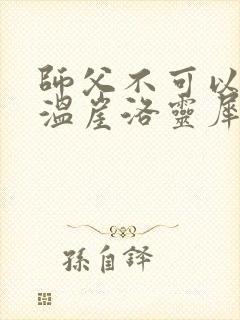 師父不可以
溫崖洛靈犀
孫自鐸